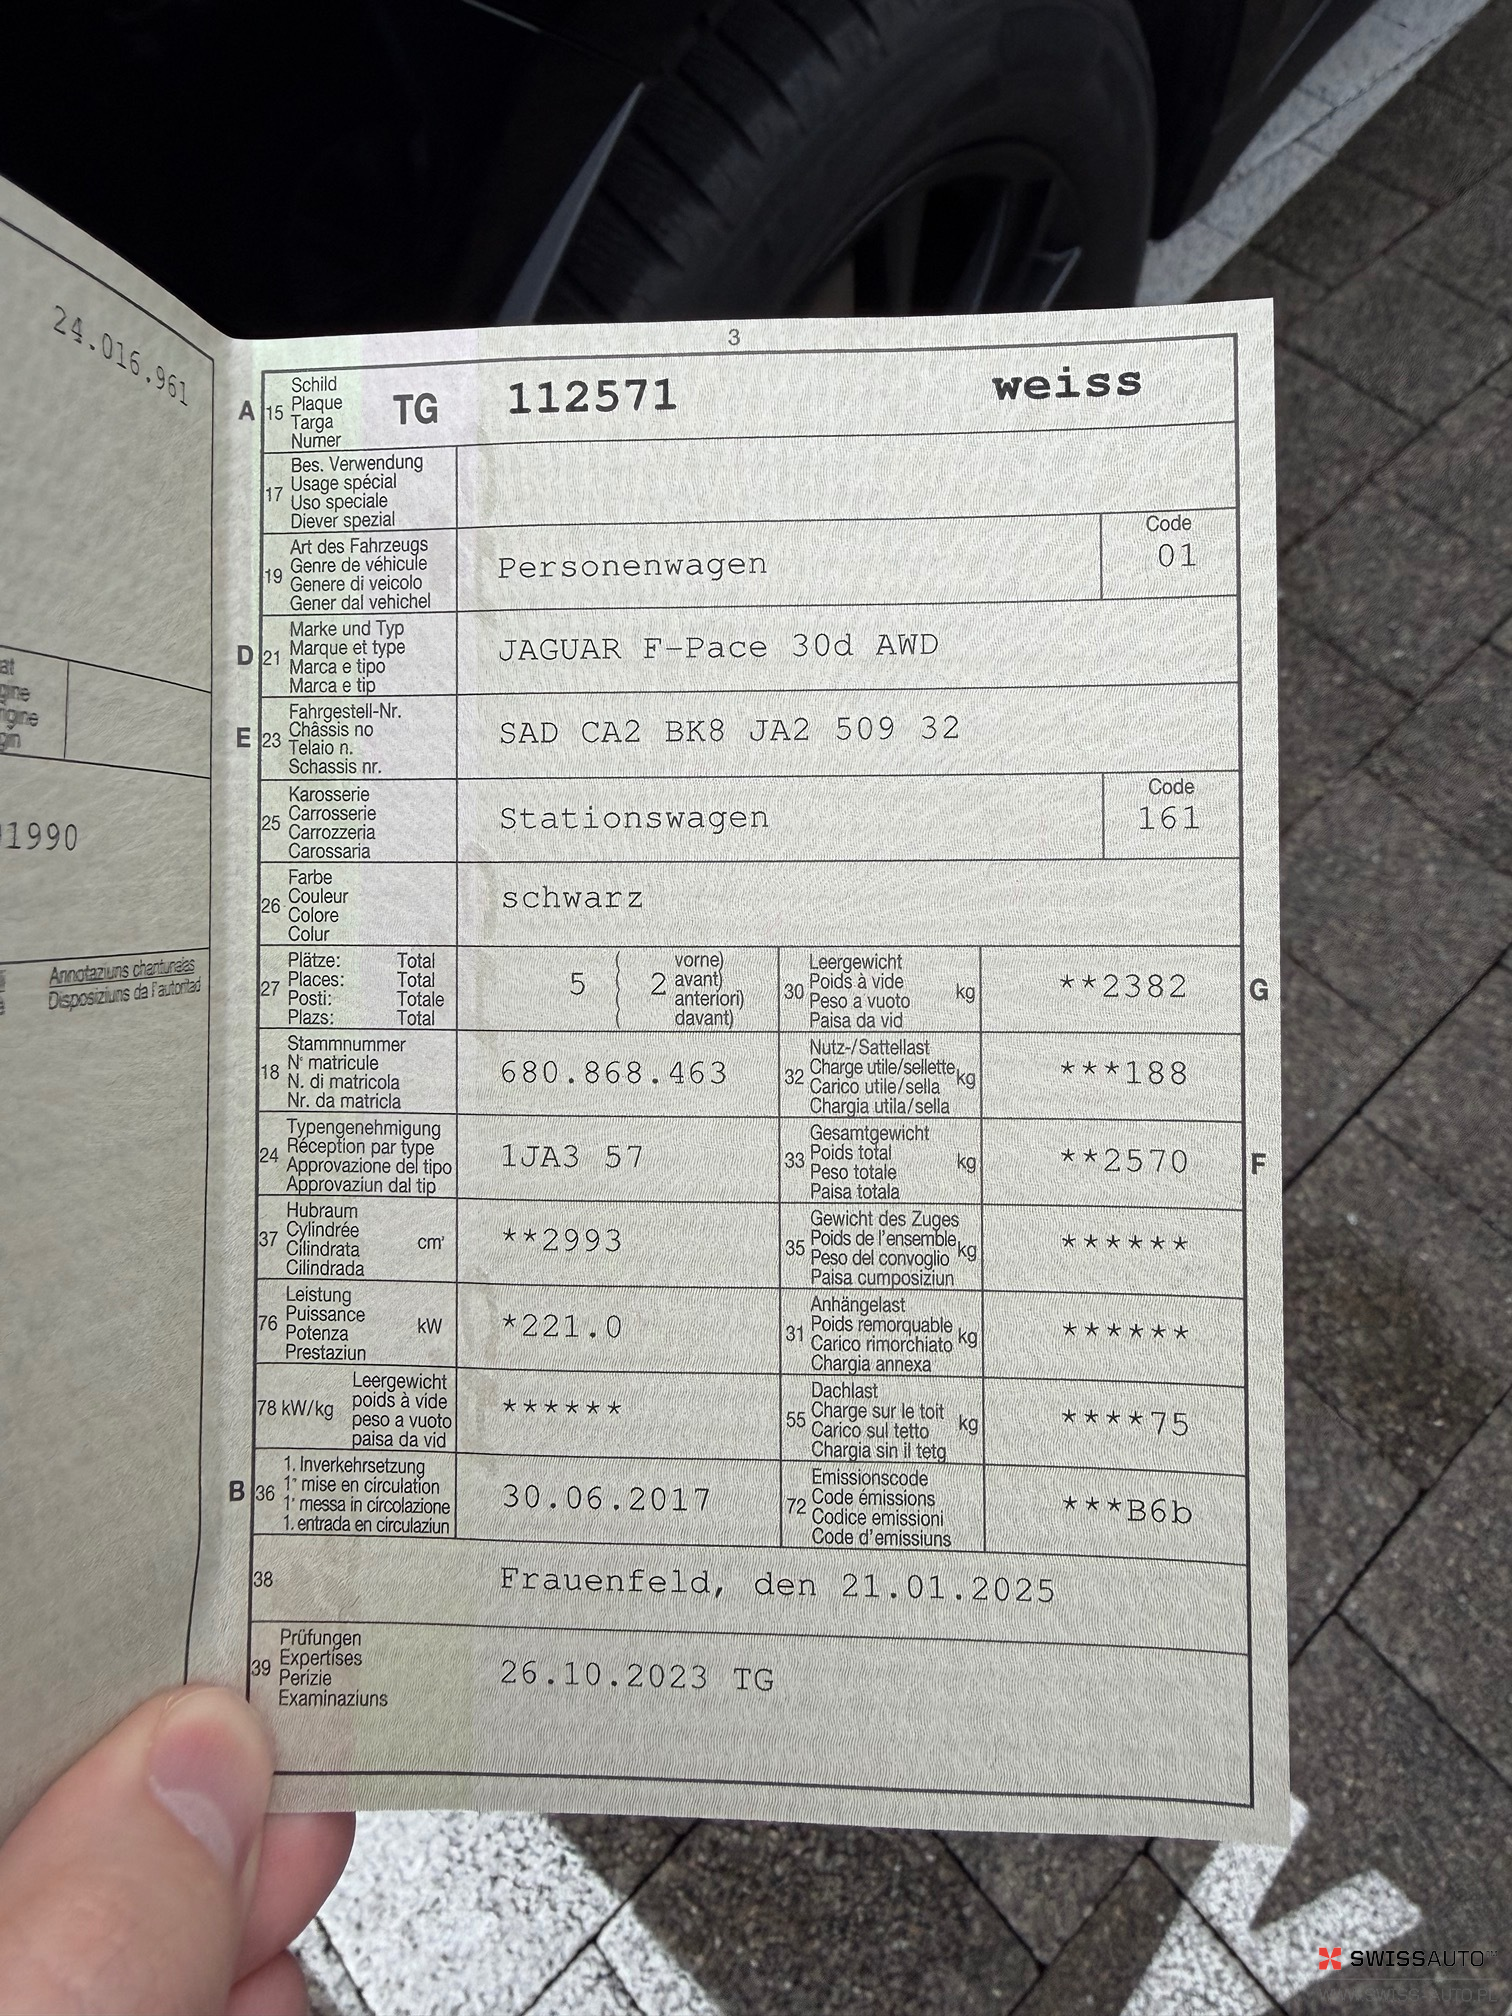 24.016.961
at
gine
ngine
gin
1990
Annotaziuns chantunalas
Disposiziuns da l'autoritad
3
A 15 Schild
Plaque
Targa
Numer
TG 112571 weiss
17 Bes. Verwendung
Usage spécial
Uso speciale
Diever spezial
19 Art des Fahrzeugs
Genre de véhicule
Genere di veicolo
Gener dal vehichel
Personenwagen
Code
01
D 21 Marke und Typ
Marque et type
Marca e tipo
Marca e tip
JAGUAR F-Pace 30d AWD
E 23 Fahrgestell-Nr.
Châssis no
Telaio n.
Schassis nr.
SAD CA2 BK8 JA2 509 32
25 Karosserie
Carrosserie
Carrozzeria
Carossaria
Stationswagen
Code
161
26 Farbe
Couleur
Colore
Colur
schwarz
27 Plätze: Total
Places: Total
Posti: Totale
Plazs: Total
5 ( 2 vorne)
avant)
anteriori)
davant)
30 Leergewicht
Poids à vide
Peso a vuoto
Paisa da vid
kg
**2382 G
18 Stammnummer
N° matricule
N. di matricola
Nr. da matricla
680.868.463
32 Nutz-/Sattellast
Charge utile/sellette
Carico utile/sella
Chargia utila/sella
kg
***188
24 Typengenehmigung
Réception par type
Approvazione del tipo
Approvaziun dal tip
1JA3 57
33 Gesamtgewicht
Poids total
Peso totale
Paisa totala
kg
**2570 F
37 Hubraum
Cylindrée
Cilindrata
Cilindrada
cm³
**2993
35 Gewicht des Zuges
Poids de l'ensemble
Peso del convoglio
Paisa cumposiziun
kg
******
76 Leistung
Puissance
Potenza
Prestaziun
kW
*221.0
31 Anhängelast
Poids remorquable
Carico rimorchiato
Chargia annexa
kg
******
78 kW/kg Leergewicht
poids à vide
peso a vuoto
paisa da vid
******
55 Dachlast
Charge sur le toit
Carico sul tetto
Chargia sin il tetg
kg
****75
B 36 1. Inverkehrsetzung
1re mise en circulation
1a messa in circolazione
1. entrada en circulaziun
30.06.2017
72 Emissionscode
Code émissions
Codice emissioni
Code d'emissiuns
***B6b
38 Frauenfeld, den 21.01.2025
39 Prüfungen
Expertises
Perizie
Examinaziuns
26.10.2023 TG
SWISSAUTO
WWW.SWISS-AUTO.PL